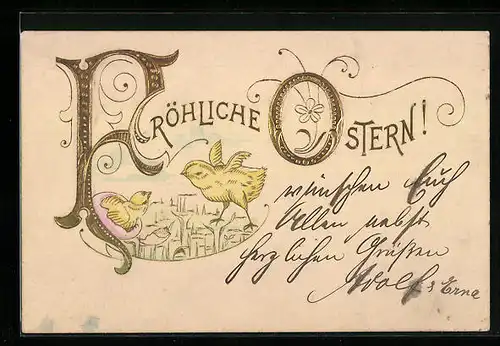 FRÖHLICHE OSTERN!
wünschen Euch
Allen nebst
herzlichen Grüßen
Adolf & Erna